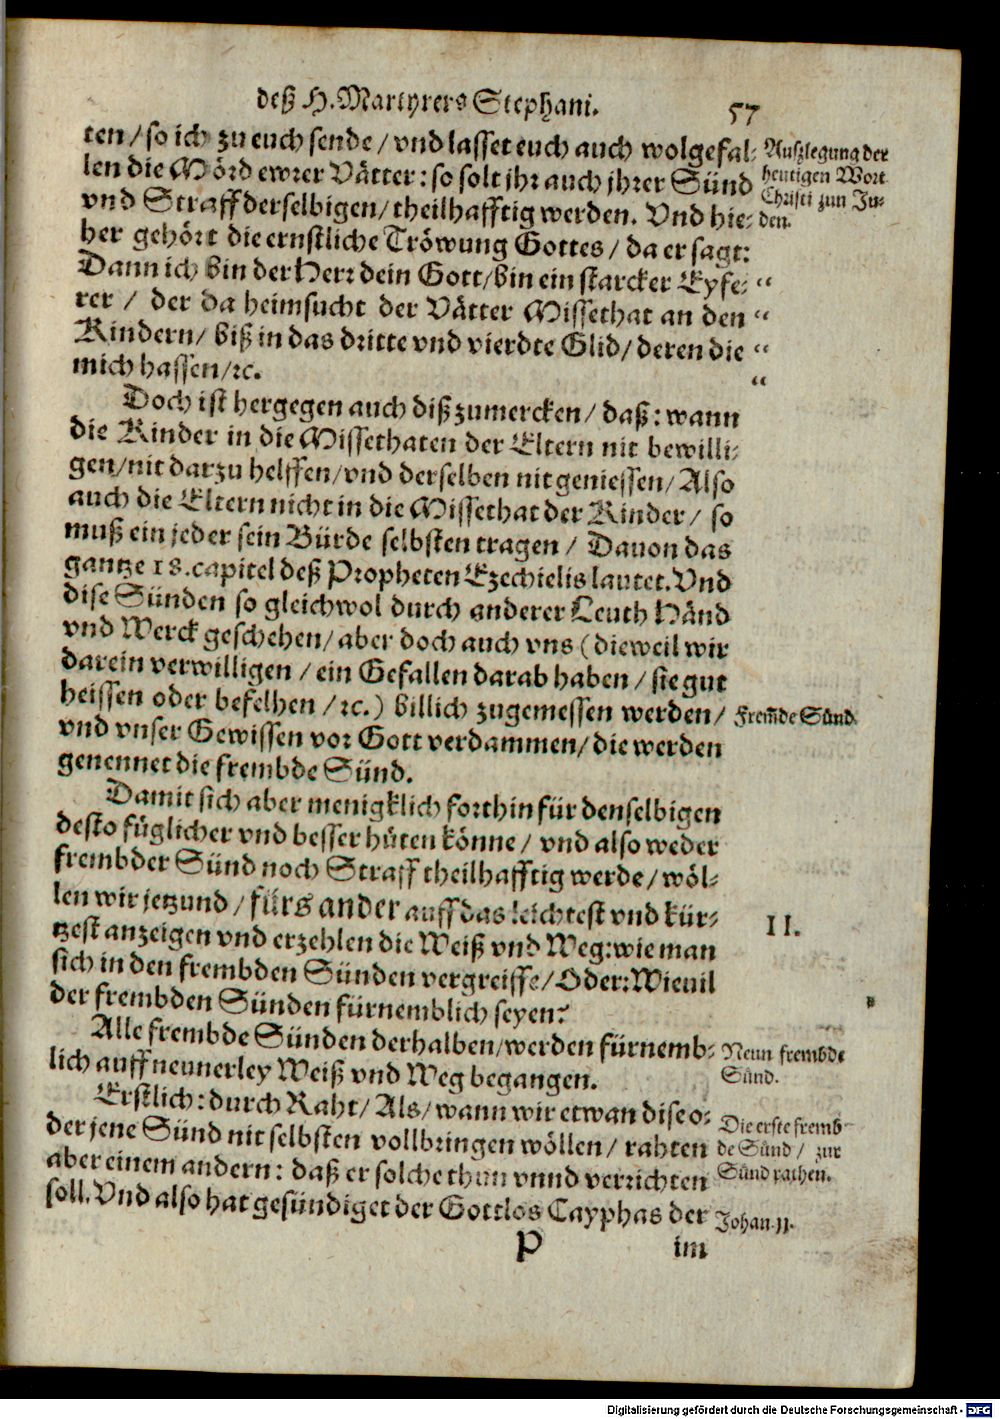 deß H. Martyrers Stephani. 57
ten / so ich zu euch sende / vnd lasset euch auch wolgefal-
len die Mörd ewrer Vätter: so solt jhr auch jhrer Sünd
vnd Straff derselbigen / theilhafftig werden. Vnd hie-
her gehört die ernstliche Tröwung Gottes / da er sagt:
Dann ich bin der Herr dein Gott / bin ein starcker Eyfe-
rer / der da heimsucht der Vätter Missethat an den
Kindern / biß in das dritte vnd vierdte Glid / deren die
mich hassen / ꝛc.
Außlegung der
heutigen Wort
Christi zun Ju-
den.
“
“
“
“
Doch ist hergegen auch diß zumercken / daß: wann
die Kinder in die Missethaten der Eltern nit bewilli-
gen / nit darzu helffen / vnd derselben nit geniessen / Also
auch die Eltern nicht in die Missethat der Kinder / so
muß ein jeder sein Bürde selbsten tragen / Dauon das
gantze 18. capitel deß Propheten Ezechielis lautet. Vnd
dise Sünden so gleichwol durch anderer Leuth Händ
vnd Werck geschehen / aber doch auch vns (dieweil wir
darein verwilligen / ein Gefallen darab haben / sie gut
heissen oder befelhen / ꝛc.) billich zugemessen werden /
vnd vnser Gewissen vor Gott verdammen / die werden
genennet die frembde Sünd.
Frem̃de Sünd.
Damit sich aber menigklich forthin für denselbigen
desto füglicher vnd besser hüten könne / vnd also weder
frembder Sünd noch Straff theilhafftig werde / wöl-
len wir jetzund / fürs ander auff das leichtest vnd kür-
tzest anzeigen vnd erzehlen die Weiß vnd Weg: wie man
sich in den frembden Sünden vergreiffe / Oder: Wieuil
der frembden Sünden fürnemblich seyen?
II.
Alle frembde Sünden derhalben / werden fürnemb-
lich auff neunerley Weiß vnd Weg begangen.
Neun frembde
Sünd.
Erstlich: durch Raht / Als / wann wir etwan dise o-
der jene Sünd nit selbsten vollbringen wöllen / rahten
aber einem andern: daß er solche thun vnnd verrichten
soll. Vnd also hat gesündiget der Gottlos Cayphas der
Die erste fremb-
de Sünd / zur
Sünd rathen.
Johan. 11.
P im
Digitalisierung gefördert durch die Deutsche Forschungsgemeinschaft - DFG